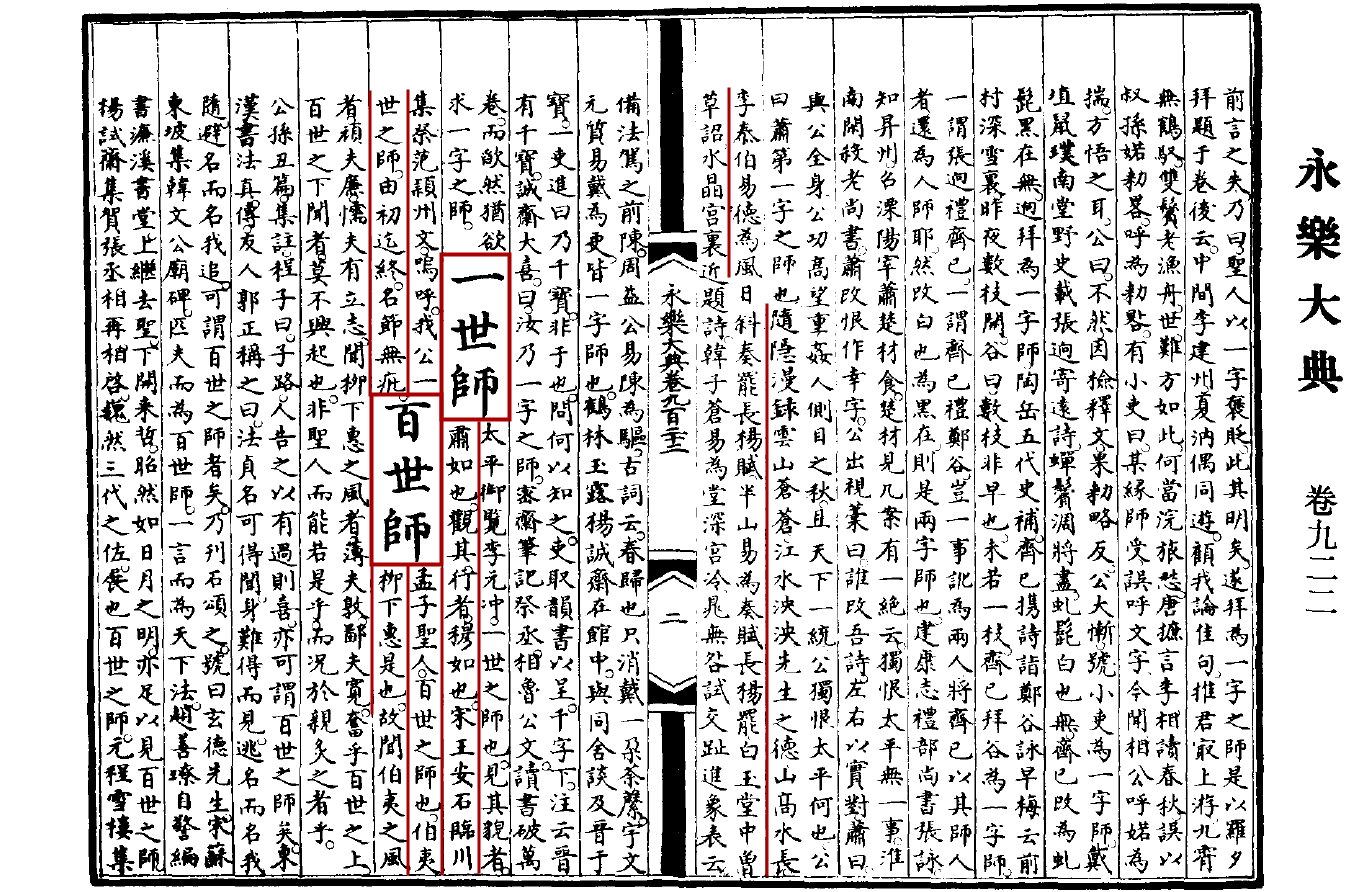 永樂大典 卷九二二
前言之失乃曰聖人以一字褒貶此其明矣遂拜為一字之師是以羅夕
拜題于卷後云中間李建州夏汭偶同遊顧我論佳句推君最上游九霄
無鶴馭雙鬢老漁舟世難方如此何當浣旅愁唐摭言李相讀春秋誤以
叔孫婼勑畧呼為勑晷有小吏曰某緣師受誤呼文字今聞相公呼婼為
揣方悟之耳公曰不然因檢釋文果勑略反公大慚號小吏為一字師戴
埴鼠璞南堂野史載張迥寄遠詩蟬鬢凋將盡虬髭白也無齊已改為虬
髭黑在無迥拜為一字師陶岳五代史補齊已攜詩詣鄭谷詠早梅云前
村深雪裏昨夜數枝開谷曰數枝非早也未若一枝齊已拜谷為一字師
一謂張迥禮齊已一謂齊已禮鄭谷豈一事訛為兩人將齊已以其師人
者還為人師耶然改白也為黑在則是兩字師也建康志禮部尚書張詠
知昇州召溧陽宰蕭楚材食楚材見几案有一絕云獨恨太平無一事淮
南閑殺老尚書蕭改恨作幸字公出視藁曰誰改吾詩左右以實對蕭曰
與公全身公功高望重姦人側目之秋且天下一統公獨恨太平何也公
曰蕭第一字之師也隨隱漫錄雲山蒼蒼江水泱泱先生之德山高水長
李泰伯易德為風日斜奏罷長楊賦半山易為奏賦長楊罷白玉堂中曾
草詔水晶宮裏近題詩韓子蒼易為堂深宮冷晁無咎試交趾進象表云
永樂大典卷九百二十二
二
備法駕之前陳周益公易陳為驅古詞云春歸也只消戴一朶荼䕷宇文
元質易戴為更皆一字師也鶴林玉露楊誠齋在館中與同舍談及晉于
寶一吏進曰乃干寶非于也問何以知之吏取韻書以呈干字下注云晉
有干寶誠齋大喜曰汝乃一字之師密齋筆記祭丞相魯公文讀書破萬
卷而歉然猶欲
求一字之師
一世師
太平御覽李元冲一世之師也見其貌者
肅如也觀其行者穆如也宋王安石臨川
集祭范潁州文嗚呼我公一
世之師由初迄終名節無疵
百世師
孟子聖人百世之師也伯夷
柳下惠是也故聞伯夷之風
者頑夫廉懦夫有立志聞柳下惠之風者薄夫敦鄙夫寬奮乎百世之上
百世之下聞者莫不興起也非聖人而能若是乎而況於親炙之者乎
公孫丑篇集註程子曰子路人告之以有過則喜亦可謂百世之師矣東
漢書法真傳友人郭正稱之曰法貞名可得聞身難得而見逃名而名我
隨避名而名我追可謂百世之師者矣乃刊石頌之號曰玄德先生宋蘇
東坡集韓文公廟碑匹夫而為百世師一言而為天下法趙善璙自警編
書濂溪書堂上繼去聖下開來哲昭然如日月之明亦足以見百世之師
楊試齋集賀張丞相再相啓巍然三代之佐展也百世之師元程雪樓集